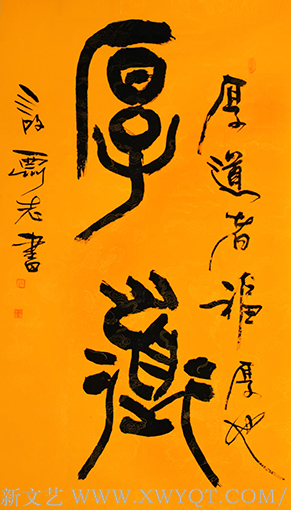 厚道者福厚也
厚道
書
新文艺 WWW.XWYQT.COM/